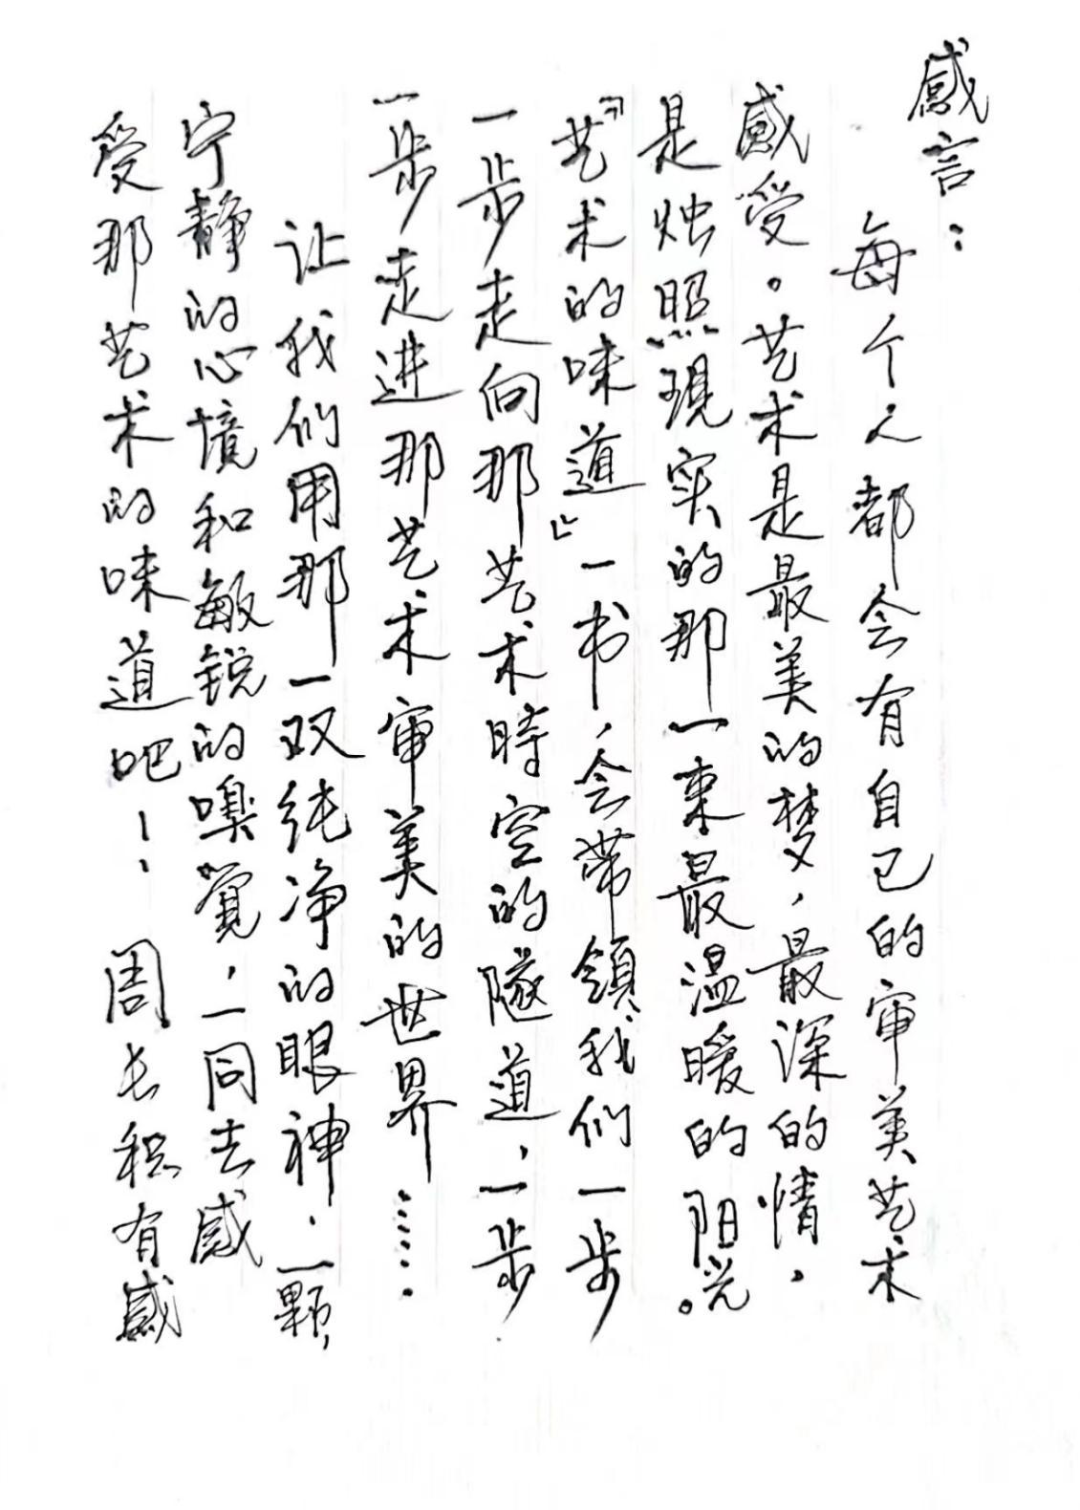 感言：
每个人都会有自己的审美艺术
感受。艺术是最美的梦，最深的情，
是烛照现实的那一束最温暖的阳光。
『艺术的味道』一书，会带领我们一步
一步走向那艺术時空的隧道，一步
一步走进那艺术审美的世界……
让我们用那一双纯净的眼神，一颗
宁静的心境和敏锐的嗅觉，一同去感
受那艺术的味道吧！周长积有感